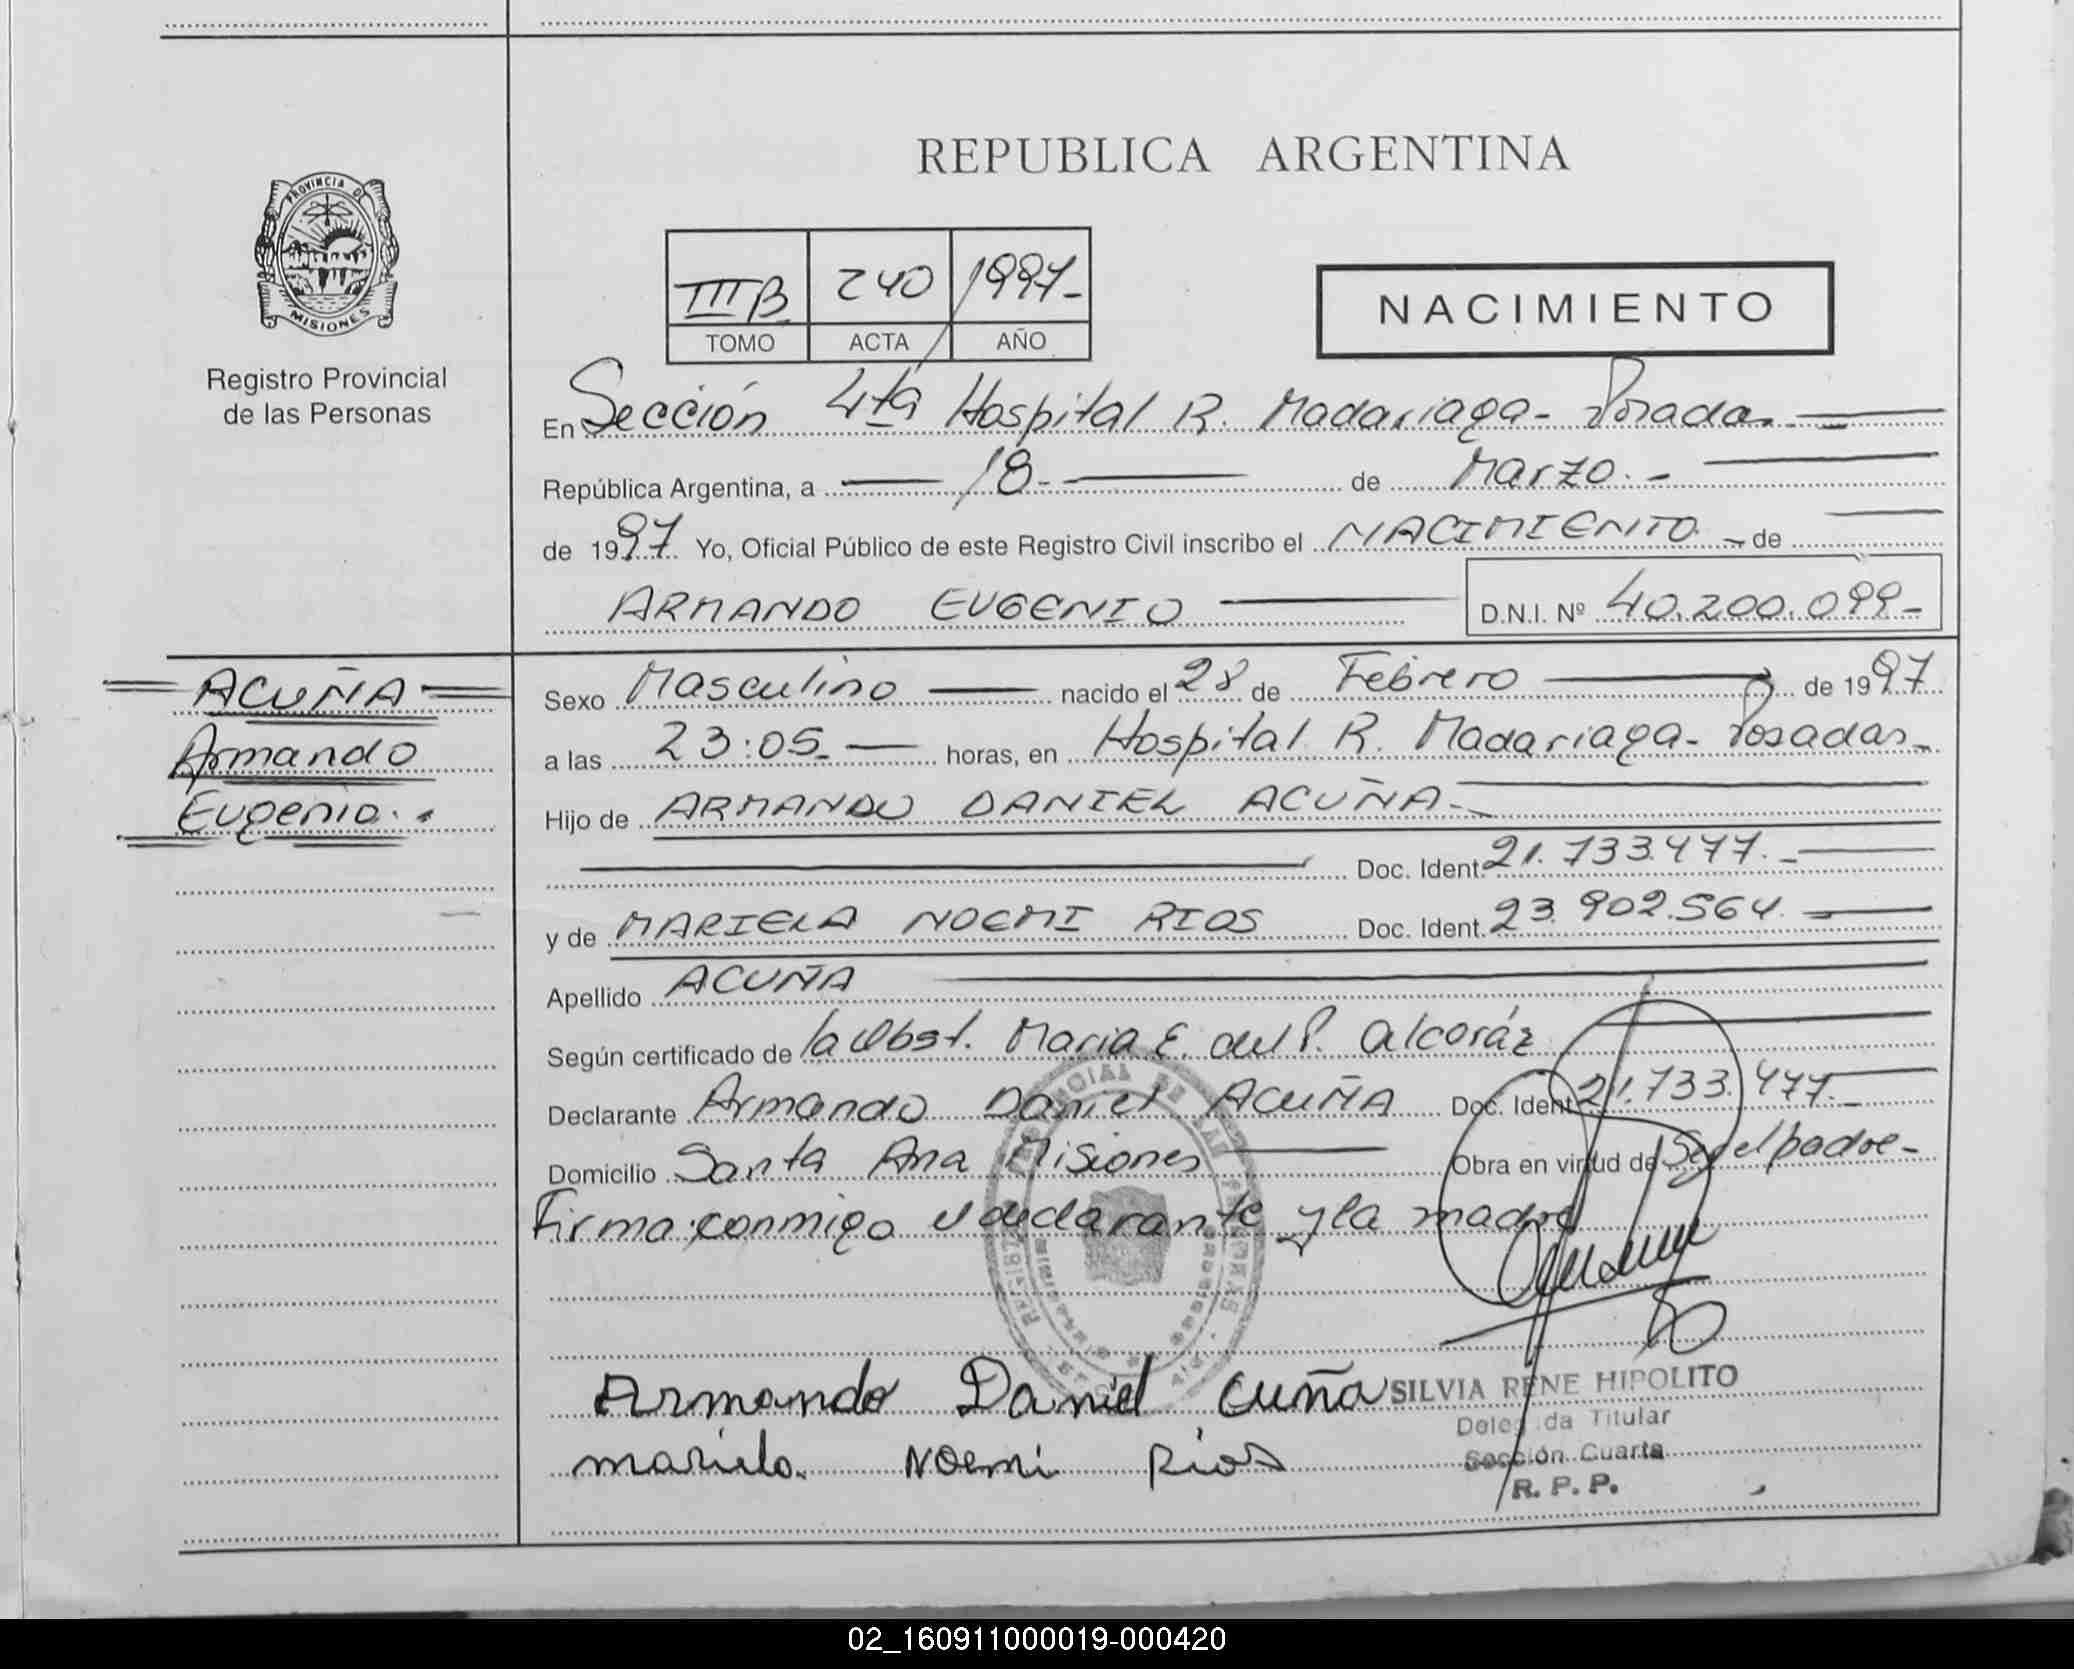 PROVINCIA DE
MISIONES
Registro Provincial
de las Personas
REPUBLICA ARGENTINA
III B 240 1997-
TOMO ACTA AÑO
NACIMIENTO
En Sección 4ta Hospital R. Madariaga- Posadas.
República Argentina, a 18- de Marzo.-
de 1997 Yo, Oficial Público de este Registro Civil inscribo el NACIMIENTO de
ARMANDO EUGENIO D.N.I. Nº 40.200.099-
ACUÑA
Armando
Eugenio.
Sexo Masculino nacido el 28 de Febrero de 1997
a las 23:05 horas, en Hospital R. Madariaga- Posadas-
Hijo de ARMANDO DANIEL ACUÑA-
Doc. Ident. 21.733.477.-
y de MARIELA NOEMI RIOS Doc. Ident. 23.902.564.-
Apellido ACUÑA
Según certificado de la Obst. Maria E. del P. Alcoráz
Declarante Armando Daniel ACUÑA Doc. Ident. 21.733.477.-
Domicilio Santa Ana Misiones Obra en virtud de Ser el padre-
Firma conmigo el declarante y la madre
Armando Daniel cuña
mariela. Noemi Rios
SILVIA RENE HIPOLITO
Delegada Titular
Sección Cuarta
R. P. P.
02_160911000019-000420